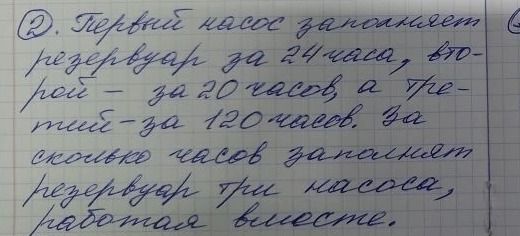 2. Первый насос заполняет
резервуар за 24 часа, вто-
рой – за 20 часов, а тре-
тий – за 120 часов. За
сколько часов заполнят
резервуар три насоса,
работая вместе.